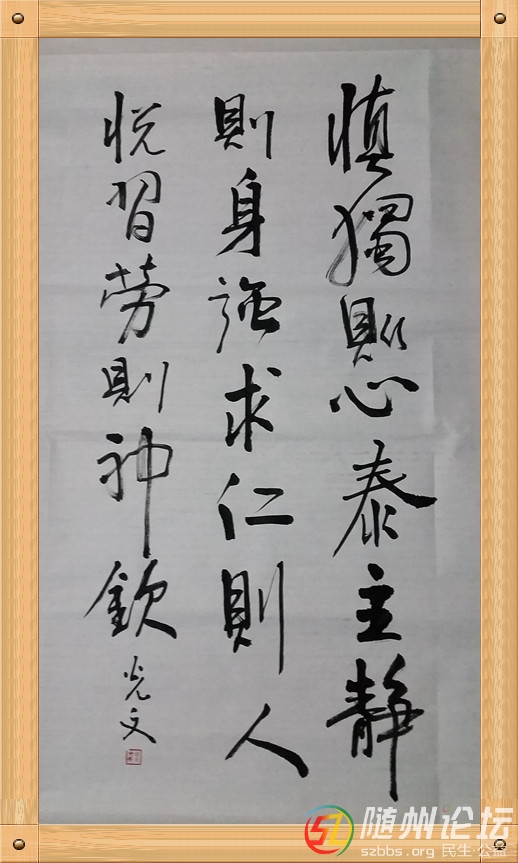 慎獨則心泰主靜
則身強求仁則人
悅習勞則神欽
光文
随州论坛
szbbs.org 民生·公益